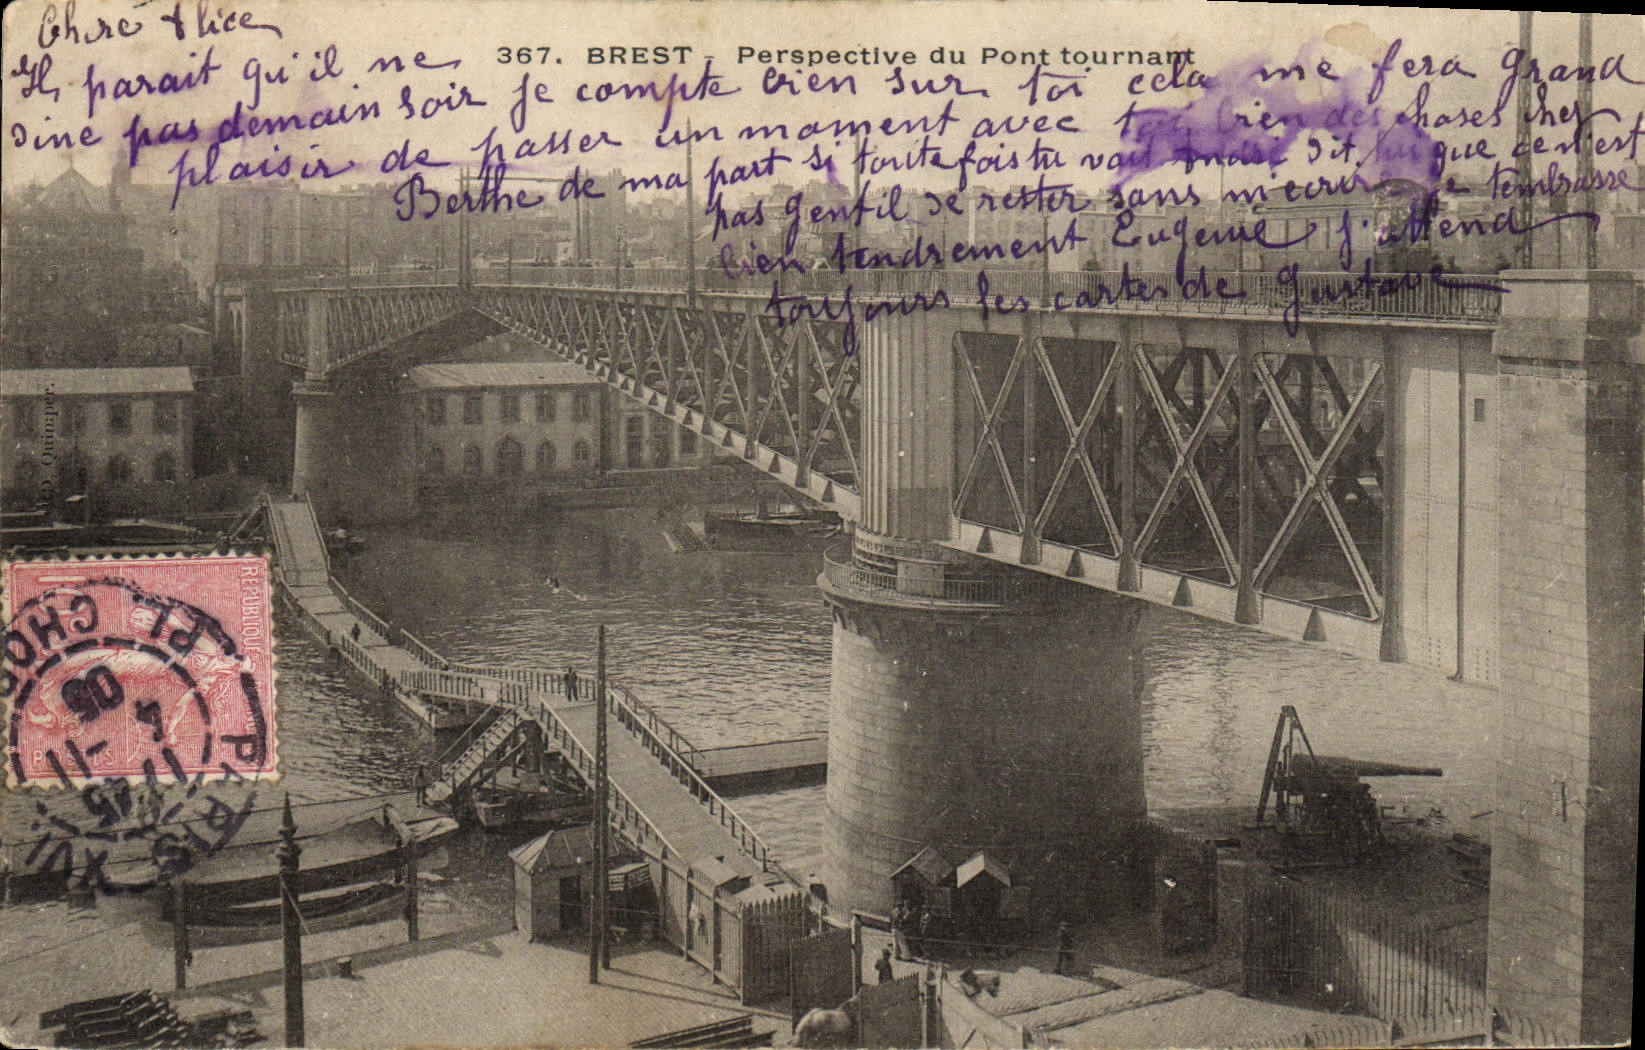 Chère Alice
367. BREST - Perspective du Pont tournant
Il parait qu'il ne
dine pas demain soir je compte bien sur toi cela me fera grand
plaisir de passer un moment avec toi bien des choses chez
Berthe de ma part si toutefois tu vois dit lui que ce n'est
pas gentil de rester sans m'ecrire je t'embrasse
bien tendrement Eugenie j'attend
toujours les cartes de Gustave
Quimper.
REPUBLIQUE
POSTES
PARIS XVI
PL. CHO
17 45
4 - 11
05